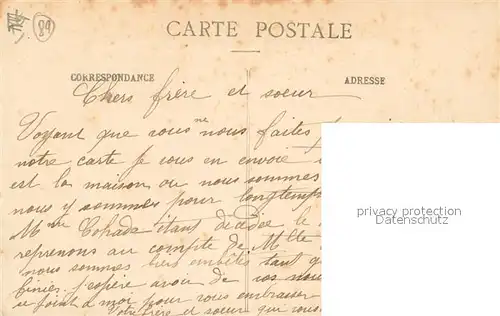 89
CARTE POSTALE
CORRESPONDANCE
ADRESSE
Chers frère et soeur
Voyant que vous ne nous faites
notre carte je vous en envoie
est la maison ou nous sommes
nous y sommes pour longtemps
Mme étant décédée le
reprenons au compte de Mlle
nous sommes bien embêtés tant
j'espère avoir de vos
a moi pour vous embrasser
Votre frère et soeur qui vous
privacy protection
watermark